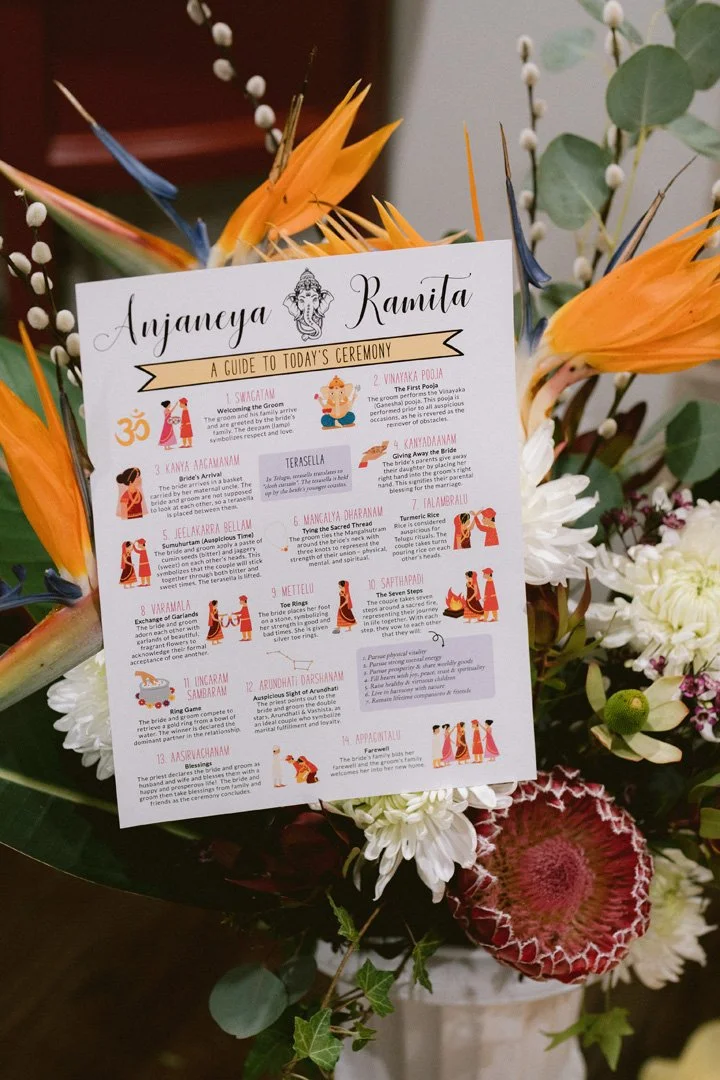 Anjaneya Ramita
A GUIDE TO TODAY'S CEREMONY
1. SWAGATAM
Welcoming the Groom
The groom and his family arrive
and are greeted by the bride's
family. The deepam (lamp)
symbolizes respect and love.
2. VINAYAKA POOJA
The First Pooja
The groom performs the Vinayaka
(Ganesha) pooja. This pooja is
performed prior to all auspicious
occasions, as he is revered as the
remover of obstacles.
3 KANYA AAGAMANAM
Bride's Arrival
The bride arrives in a basket
carried by her maternal uncle. The
bride and groom are not supposed
to look at each other, so a terasella
is placed between them.
TERASELLA
In Telugu, terasella translates to
"cloth curtain". The terasella is held
up by the bride's younger cousins.
4 KANYADAANAM
Giving Away the Bride
The bride's parents give away
their daughter by placing her
right hand into the groom's right
hand. This signifies their parental
blessing for the marriage.
5 JEELAKARRA BELLAM
Sumuhurtam (Auspicious Time)
The bride and groom apply a paste of
cumin seeds (bitter) and jaggery
(sweet) on each other's heads. This
symbolizes that the couple will stick
together through both bitter and
sweet times. The terasella is lifted.
6 MANGALYA DHARANAM
Tying the Sacred Thread
The groom ties the Mangalsutram
around the bride's neck with
three knots to represent the
strength of their union - physical,
mental, and spiritual.
7. TALAMBRALU
Turmeric Rice
Rice is considered
auspicious for
Telugu rituals. The
couple takes turns
pouring rice on each
other's heads.
8 VARAMALA
Exchange of Garlands
The bride and groom
adorn each other with
garlands of beautiful,
fragrant flowers to
acknowledge their formal
acceptance of one another.
9 METTELU
Toe Rings
The bride places her foot
on a stone, symbolizing
her strength in good and
bad times. She is given
silver toe rings.
10 SAPTHAPADI
The Seven Steps
The couple takes seven
steps around a sacred fire,
representing their journey
in life together. With each
step, they vow to each other
that they will:
1. Pursue physical vitality
2. Pursue strong mental energy
3. Pursue prosperity & share worldly goods
4. Fill hearts with joy, peace, trust & spirituality
5. Raise healthy & virtuous children
6. Live in harmony with nature
7. Remain lifetime companions & friends
11 UNGARAM SAMBARAM
Ring Game
The bride and groom compete to
retrieve a gold ring from a bowl of
water. The winner is declared the
dominant partner in the relationship.
12 ARUNDHATI DARSHANAM
Auspicious Sight of Arundhati
The priest points out to the
bride and groom the double
stars, Arundhati & Vashista, as
an ideal couple who symbolize
marital fulfillment and loyalty.
13. AASIRVACHANAM
Blessings
The priest declares the bride and groom as
husband and wife and blesses them with a
happy and prosperous life! The bride and
groom then take blessings from family and
friends as the ceremony concludes.
14. APPAGINTALU
Farewell
The bride's family bids her
farewell and the groom's family
welcomes her into her new home.
ॐ